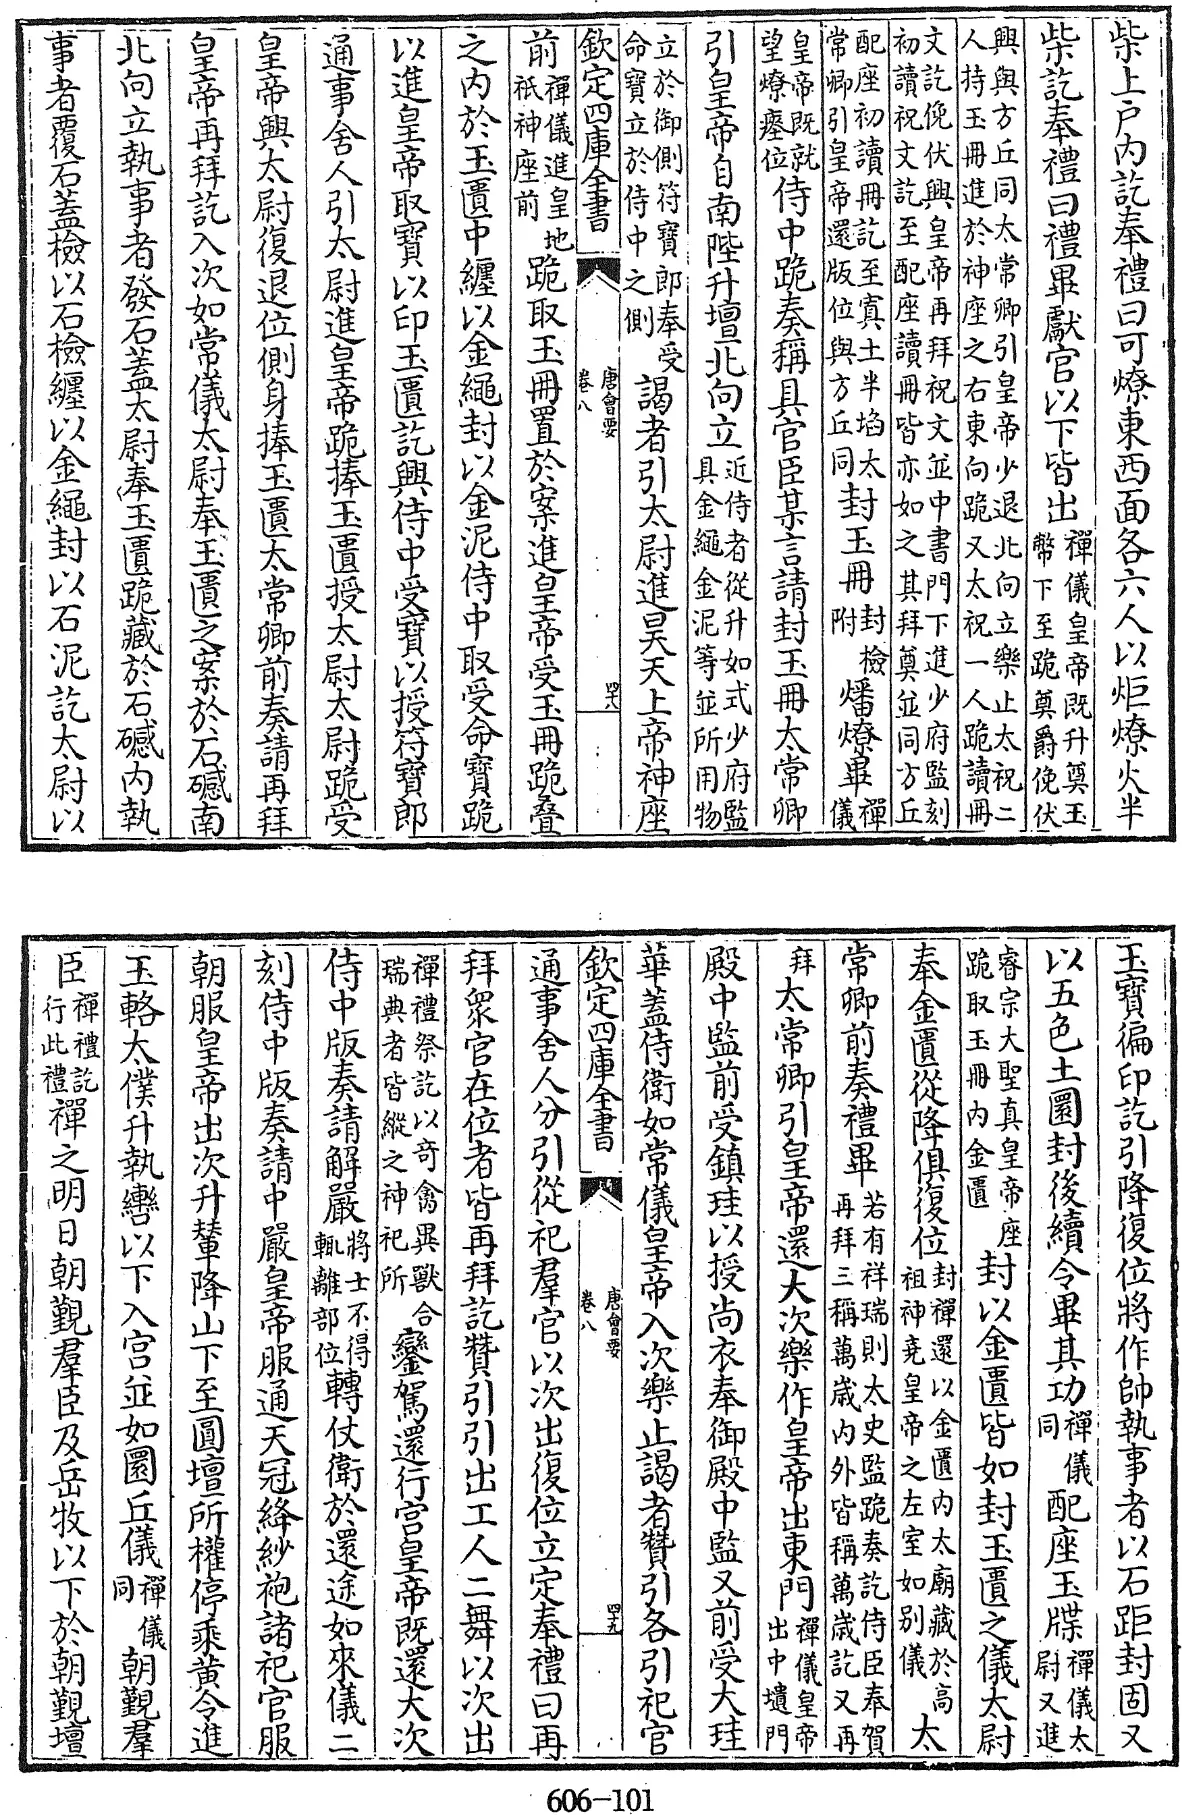 柴上戶内訖奉禮曰可燎東西面各六人以炬燎火半
柴訖奉禮曰禮畢獻官以下皆出禪儀皇帝既升奠玉幣下至跪奠爵俛伏
興與方丘同太常卿引皇帝少退北向立樂止太祝二人持玉冊進於神座之右東向跪又太祝一人跪讀冊
文訖俛伏興皇帝再拜祝文並中書門下進少府監刻初讀祝文訖至配座讀冊皆亦如之其拜奠並同方丘
配座初讀冊訖至寘土半埳太常卿引皇帝還版位與方丘同封玉冊封檢附燔燎畢禪儀
皇帝既就望燎瘞位侍中跪奏稱具官臣某言請封玉冊太常卿
引皇帝自南陛升壇北向立近侍者從升如式少府監具金繩金泥等並所用物
立於御側符寶郎奉受命寶立於侍中之側謁者引太尉進昊天上帝神座
欽定四庫全書 唐會要 卷八 四十八
前禪儀進皇地祇神座前跪取玉冊置於案進皇帝受玉冊跪疊
之内於玉匱中纏以金繩封以金泥侍中取受命寶跪
以進皇帝取寶以印玉匱訖興侍中受寶以授符寶郎
通事舍人引太尉進皇帝跪捧玉匱授太尉太尉跪受
皇帝興太尉復退位側身捧玉匱太常卿前奏請再拜
皇帝再拜訖入次如常儀太尉奉玉匱之案於石礛南
北向立執事者發石蓋太尉奉玉匱跪藏於石礛内執
事者覆石蓋檢以石檢纏以金繩封以石泥訖太尉以
玉寶徧印訖引降復位將作帥執事者以石距封固又
以五色土圜封後續令畢其功禪儀同配座玉牒禪儀太尉又進
睿宗大聖真皇帝座跪取玉冊内金匱封以金匱皆如封玉匱之儀太尉
奉金匱從降俱復位封禪還以金匱内太廟藏於高祖神堯皇帝之左室如别儀太
常卿前奏禮畢若有祥瑞則太史監跪奏訖侍臣奉賀再拜三稱萬歲内外皆稱萬歲訖又再
拜太常卿引皇帝還大次樂作皇帝出東門禪儀皇帝出中壝門
殿中監前受鎮珪以授尚衣奉御殿中監又前受大珪
華蓋侍衛如常儀皇帝入次樂止謁者贊引各引祀官
欽定四庫全書 唐會要 卷八 四十九
通事舍人分引從祀羣官以次出復位立定奉禮曰再
拜眾官在位者皆再拜訖贊引引出工人二舞以次出
禪禮祭訖以奇禽異獸合瑞典者皆縱之神祀所鑾駕還行宫皇帝既還大次
侍中版奏請解嚴將士不得輒離部位轉仗衛於還途如來儀二
刻侍中版奏請中嚴皇帝服通天冠絳紗袍諸祀官服
朝服皇帝出次升輦降山下至圓壇所權停乘黄令進
玉輅太僕升執轡以下入宫並如圜丘儀禪儀同朝覲羣
臣禪禮訖行此禮禪之明日朝覲羣臣及岳牧以下於朝覲壇
606-101